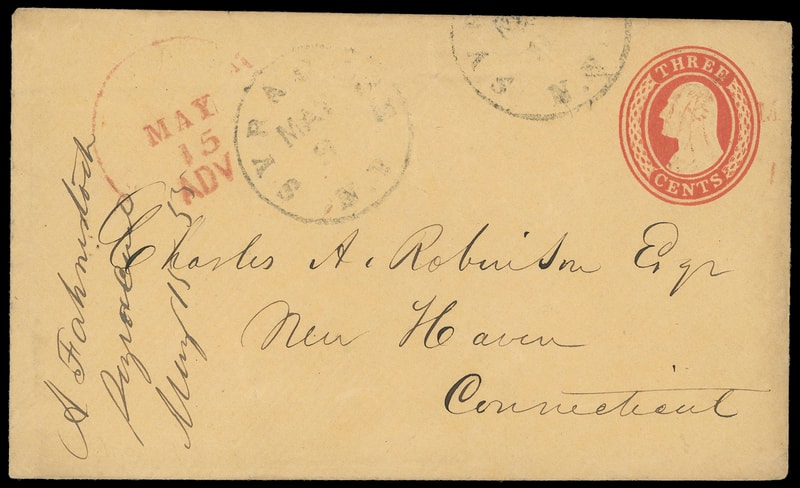 THREE
CENTS
MAY
15
ADV
SYRA
MAY
9
N.Y.
Charles A. Robinson Esqr
New Haven
Connecticut
A Fahnestock
Syracuse
May 15